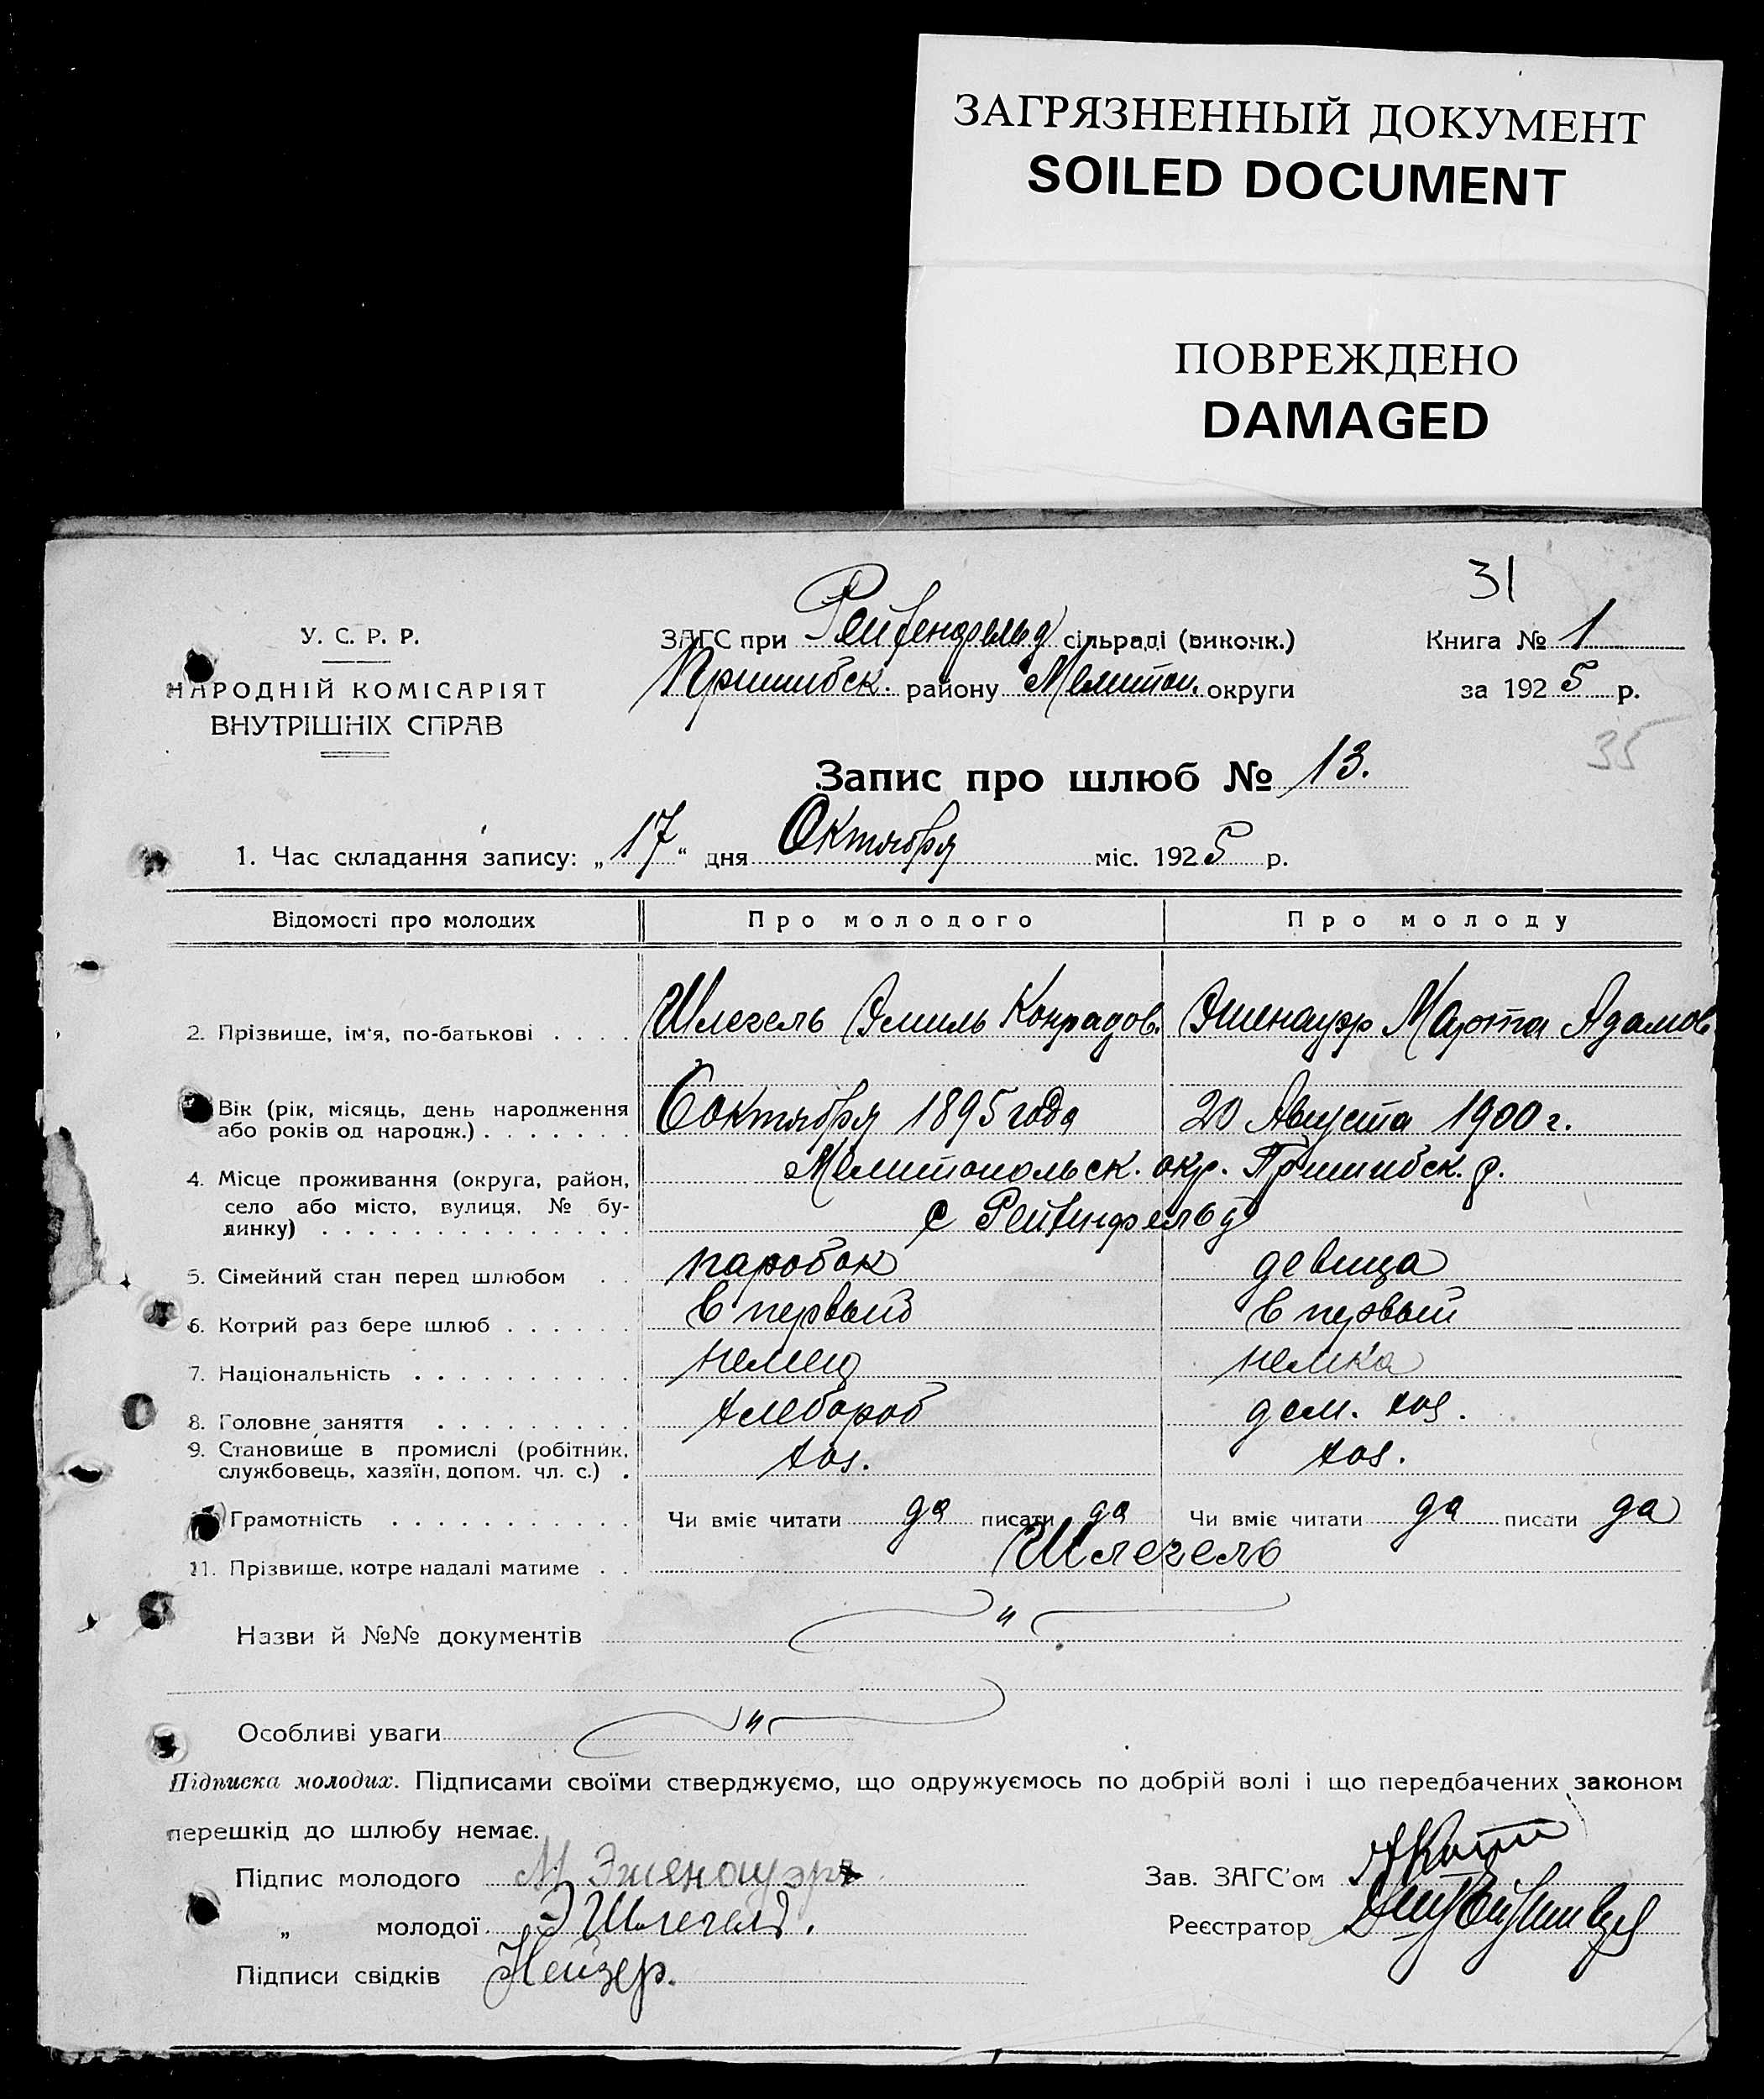 ЗАГРЯЗНЕННЫЙ ДОКУМЕНТ
SOILED DOCUMENT
ПОВРЕЖДЕНО
DAMAGED
31
У. С. Р. Р.
НАРОДНІЙ КОМІСАРІЯТ
ВНУТРІШНІХ СПРАВ
ЗАГС при Рейхенфельд сільраді (виконк.)
Пришибск. району Мелитоп. округи
Книга № 1
за 1925 р.
35
Запис про шлюб № 13.
1. Час складання запису: „17“ дня Октября міс. 1925 р.
Відомості про молодих Про молодого Про молоду
2. Прізвище, ім'я, по-батькові . . . . Шлегель Эмиль Конрадов. Эшенауэр Марта Адамов.
Вік (рік, місяць, день народження
або років од народж.) . . . . . . . 6 октября 1895 года 20 Августа 1900 г.
4. Місце проживання (округа, район,
село або місто, вулиця, № бу-
динку) . . . . . . . . . . . . . .
Мелитопольск. окр. Пришибск. р.
с Рейхенфельд
5. Сімейний стан перед шлюбом . . паробок девица
6. Котрий раз бере шлюб . . . . . . в первый в первый
7. Національність . . . . . . . . . . немец немка
8. Головне заняття . . . . . . . . . хлебороб дом. хоз.
9. Становище в промислі (робітник,
службовець, хазяїн, допом. чл. с.) . хоз. хоз.
Грамотність . . . . . . . . . . . Чи вміє читати да писати да Чи вміє читати да писати да
11. Прізвище, котре надалі матиме . . Шлегель
Назви й №№ документів "
Особливі уваги "
Підписка молодих. Підписами своїми стверджуємо, що одружуємось по добрій волі і що передбачених законом
перешкід до шлюбу немає.
Підпис молодого М. Эшенауэр
„ молодої Э Шлегель.
Підписи свідків Нейзер.
Зав. ЗАГС'ом
Реєстратор